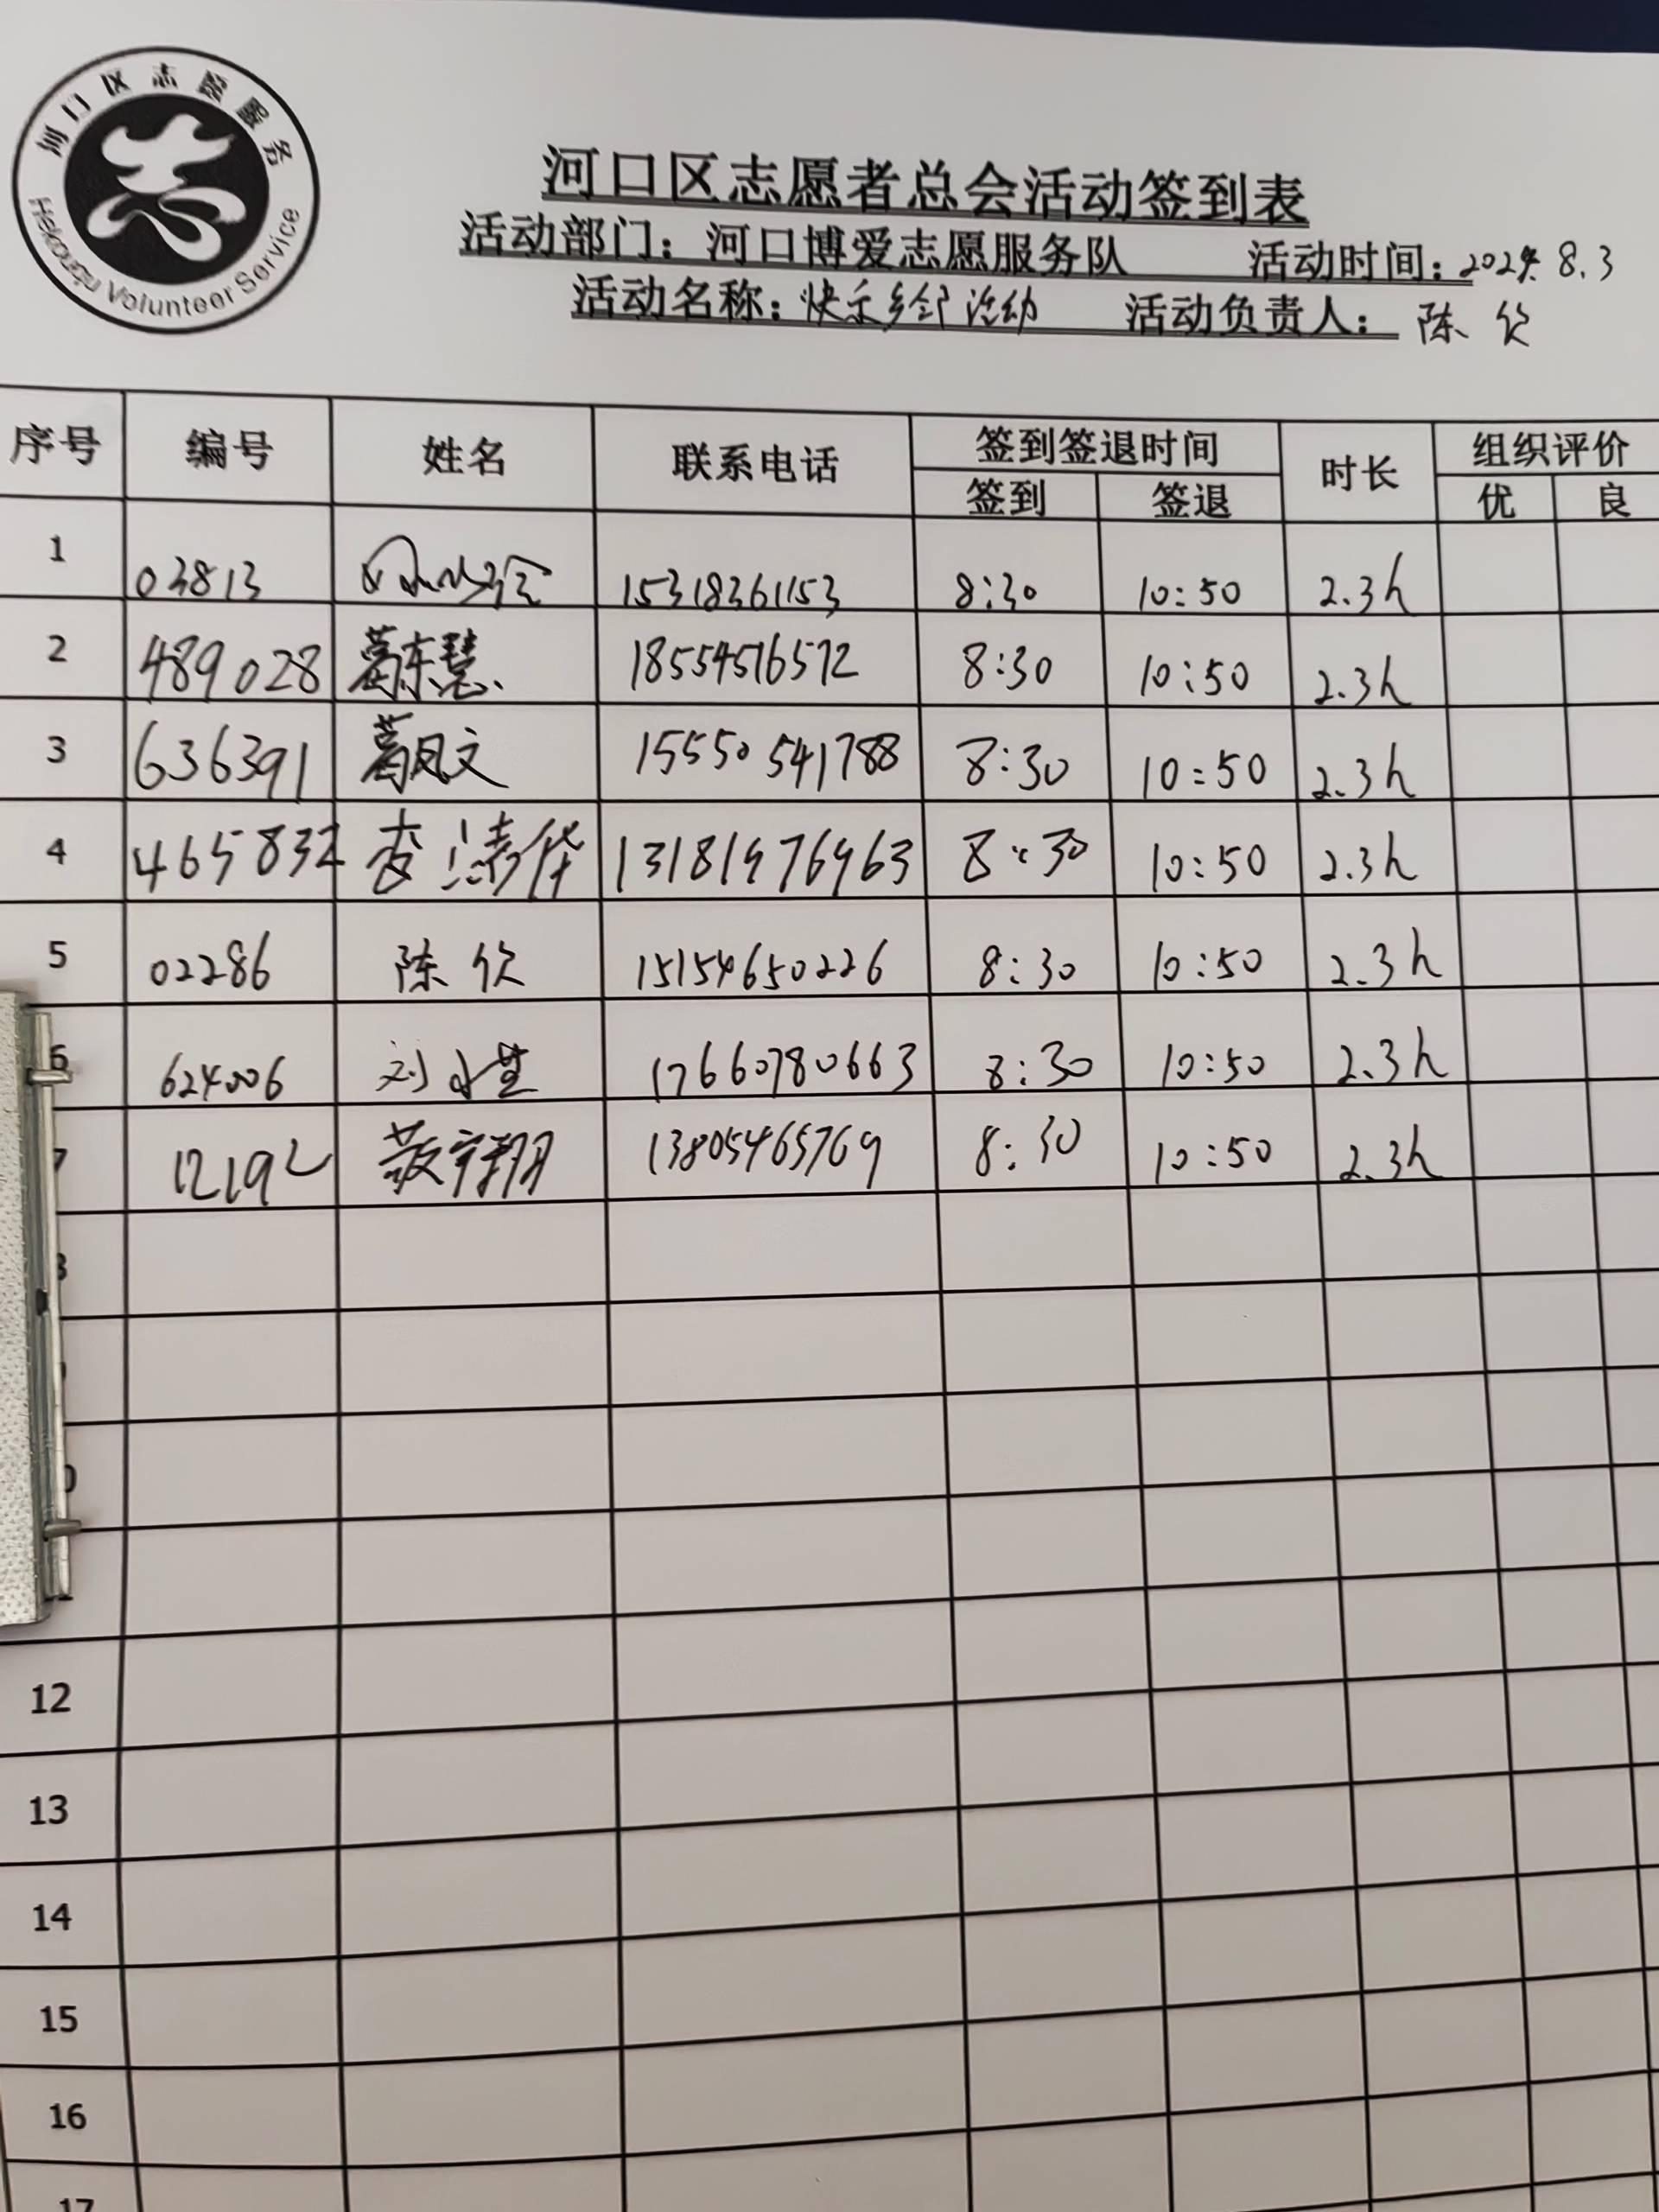 河口区志愿服务
Hekouqu Volunteer Service
河口区志愿者总会活动签到表
活动部门：河口博爱志愿服务队 活动时间：2024.8.3
活动名称：快乐乡邻活动 活动负责人：陈
序号 编号 姓名 联系电话 签到签退时间 时长 组织评价
签到 签退 优 良
1 03813 15318361153 8:30 10:50 2.3h
2 489028 葛东慧 18554516572 8:30 10:50 2.3h
3 636391 葛凤文 15550541788 8:30 10:50 2.3h
4 465832 13181976963 8:30 10:50 2.3h
5 02286 陈 15154650226 8:30 10:50 2.3h
6 624006 刘 17660780663 8:30 10:50 2.3h
7 12192 13805465769 8:30 10:50 2.3h
12
13
14
15
16
17